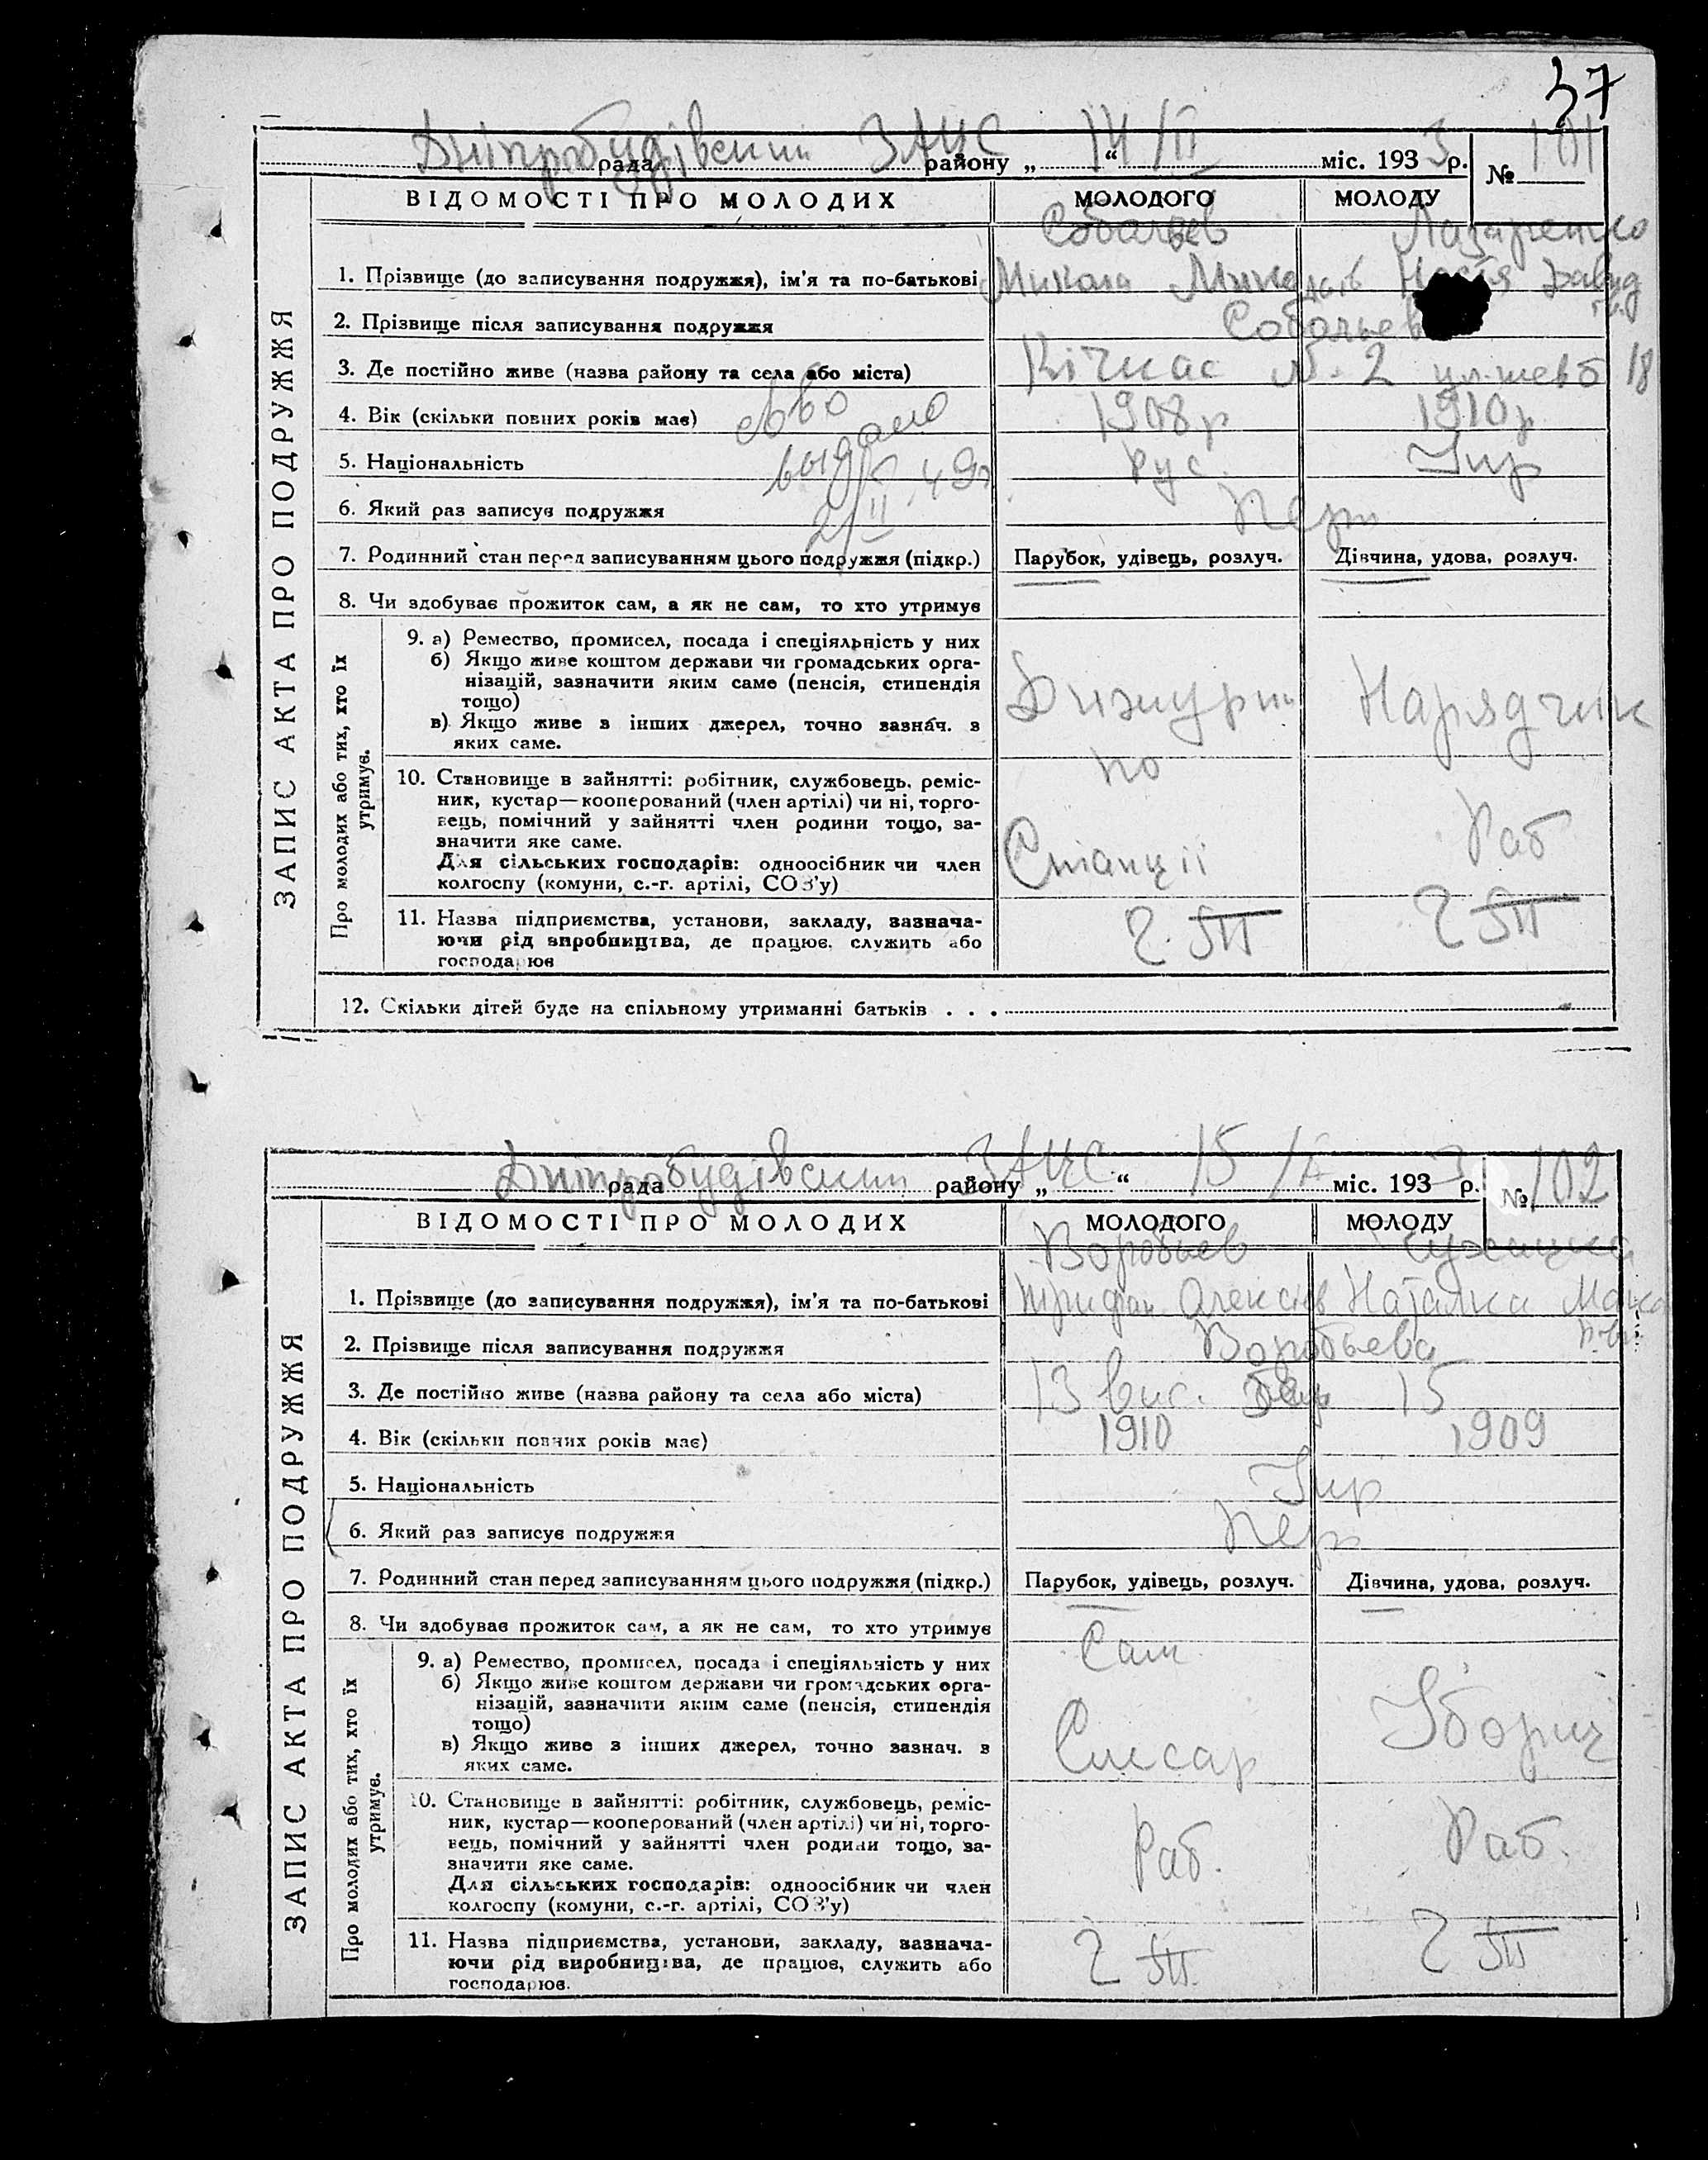 37
Дніпробудівський ЗАЦС 14/II
рада району „ “ міс. 1933 р. № 101
ВІДОМОСТІ ПРО МОЛОДИХ МОЛОДОГО МОЛОДУ
ЗАПИС АКТА ПРО ПОДРУЖЖЯ
Лазаренко
1. Прізвище (до записування подружжя), ім'я та по-батькові Микола Давид
2. Прізвище після записування подружжя
3. Де постійно живе (назва району та села або міста) Кічкас N. 2 18
4. Вік (скільки повних років має) 1908 р 1910 р
5. Національність Рус. Укр
выдано
6. Який раз записує подружжя Перш
7. Родинний стан перед записуванням цього подружжя (підкр.) Парубок, удівець, розлуч. Дівчина, удова, розлуч.
8. Чи здобуває прожиток сам, а як не сам, то хто утримує
Про молодих або тих, хто їх утримує.
9. а) Ремество, промисел, посада і спеціяльність у них
б) Якщо живе коштом держави чи громадських орга-
нізацій, зазначити яким саме (пенсія, стипендія
тощо)
в) Якщо живе з інших джерел, точно зазнач. з
яких саме.
Нарядчик
по
Станції
10. Становище в зайнятті: робітник, службовець, реміс-
ник, кустар—кооперований (член артілі) чи ні, торго-
вець, помічний у зайнятті член родини тощо, за-
значити яке саме.
Для сільських господарів: одноосібник чи член
колгоспу (комуни, с.-г. артілі, СОЗ'у)
Раб
11. Назва підприємства, установи, закладу, зазнача-
ючи рід виробництва, де працює, служить або
господарює
12. Скільки дітей буде на спільному утриманні батьків . . .
Дніпробудівський ЗАЦС 15/II
рада району „ “ міс. 1933 р. № 102
ВІДОМОСТІ ПРО МОЛОДИХ МОЛОДОГО МОЛОДУ
ЗАПИС АКТА ПРО ПОДРУЖЖЯ
Воробьев
1. Прізвище (до записування подружжя), ім'я та по-батькові Трифон Олексієв Наталка
2. Прізвище після записування подружжя Воробьева
3. Де постійно живе (назва району та села або міста) 13 вис. 15
4. Вік (скільки повних років має) 1910 1909
5. Національність Укр
6. Який раз записує подружжя Перш
7. Родинний стан перед записуванням цього подружжя (підкр.) Парубок, удівець, розлуч. Дівчина, удова, розлуч.
8. Чи здобуває прожиток сам, а як не сам, то хто утримує Сам
Про молодих або тих, хто їх утримує.
9. а) Ремество, промисел, посада і спеціяльність у них
б) Якщо живе коштом держави чи громадських орга-
нізацій, зазначити яким саме (пенсія, стипендія
тощо)
в) Якщо живе з інших джерел, точно зазнач. з
яких саме.
Слюсар Уборщ
10. Становище в зайнятті: робітник, службовець, реміс-
ник, кустар—кооперований (член артілі) чи ні, торго-
вець, помічний у зайнятті член родини тощо, за-
значити яке саме.
Для сільських господарів: одноосібник чи член
колгоспу (комуни, с.-г. артілі, СОЗ'у)
Раб. Раб.
11. Назва підприємства, установи, закладу, зазнача-
ючи рід виробництва, де працює, служить або
господарює.